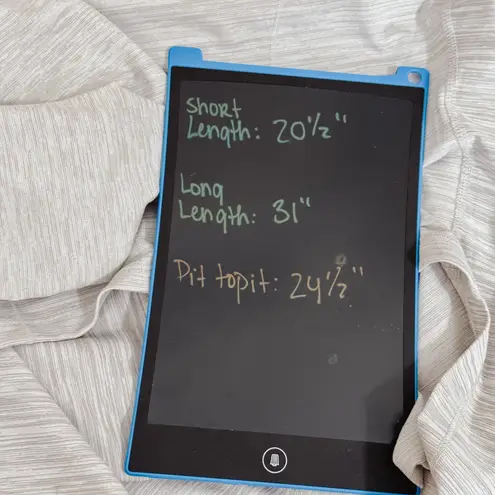 Short
Length: 20 1/2"
Long
Length: 31"
Pit to pit: 24 1/2"